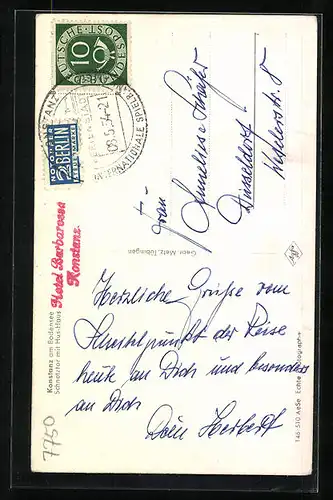 DEUTSCHE·BUNDESPOST
10
KONSTANZ
-8.5.54-2
INTERNATIONALE SPIELBANK
NOTOPFER
2 BERLIN
STEUERMARKE
Frau
Anneliese Schäfer
Düsseldorf
Hotel Barbarossa
Konstanz.
Gebr. Metz, Tübingen
Konstanz am Bodensee
Schnetztor mit Hus-Haus
Herzliche Grüße vom
Scheitelpunkt der Reise
heute an Dich und besonders
an Dich
Dein Herbert
146-510 AeSe Echte Photographie
7750